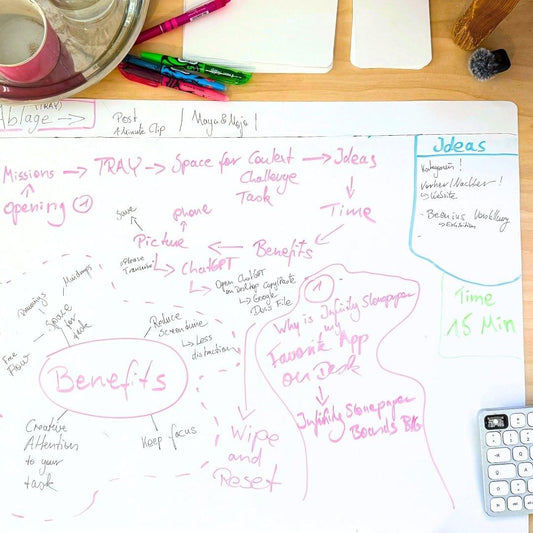 Ablage (TRAY) →
Post
4 Minute Clip
Maya & Mojo
Missions → TRAY → Space for Context → Ideas
Challenge
Task
Opening 1
Time
Benefits
Picture
Save
phone
Please
ChatGPT
Open ChatGPT
on Desktop Copy/Paste
→ Google
Docs File
Benefits
Drawings
Mindmaps
Space
for
task
Free
Flow
Reduce
Screentime
→ Less
distraction
Creative
Attention
to your
task
Keep focus
Wipe
and
Reset
1
Why is Infinity Stonepaper
my
Favorite App
on Desk
Infinity Stonepaper
Boards
Ideas
Kategorien!
Vorher/Nachher!
↳ Website
Time
15 Min